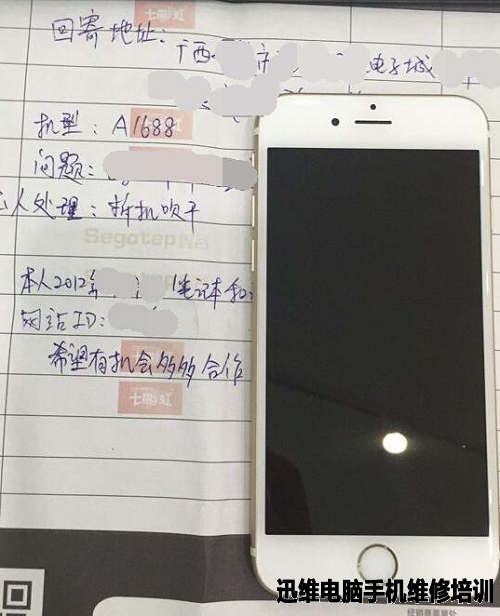 七彩虹
回寄地址：广西 市 电子城
机型：A1688
问题：
人处理：拆机吹干
Segotep
本人2012年 笔记本和
网站ID：
希望有机会多多合作
七彩虹
迅维电脑手机维修培训